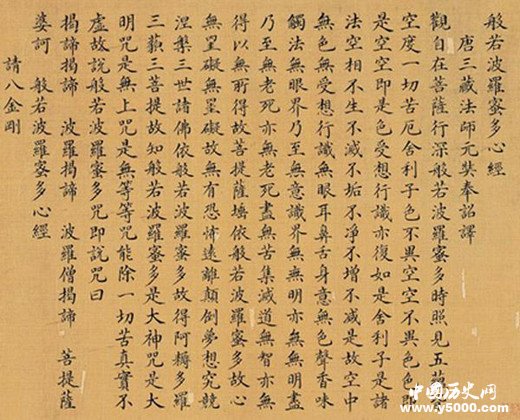 般若波羅蜜多心經
唐三藏法師元奘奉詔譯
觀自在菩薩行深般若波羅蜜多時照見五蘊皆
空度一切苦厄舍利子色不異空空不異色色即
是空空即是色受想行識亦復如是舍利子是諸
法空相不生不滅不垢不淨不增不減是故空中
無色無受想行識無眼耳鼻舌身意無色聲香味
觸法無眼界乃至無意識界無無明亦無無明盡
乃至無老死亦無老死盡無苦集滅道無智亦無
得以無所得故菩提薩埵依般若波羅蜜多故心
無罣礙無罣礙故無有恐怖遠離顛倒夢想究竟
涅槃三世諸佛依般若波羅蜜多故得阿耨多羅
三藐三菩提故知般若波羅蜜多是大神咒是大
明咒是無上咒是無等等咒能除一切苦真實不
虛故說般若波羅蜜多咒即說咒曰
揭諦揭諦 波羅揭諦 波羅僧揭諦 菩提薩
婆訶 般若波羅蜜多心經
請八金剛
中国历史网
www.y5000.com